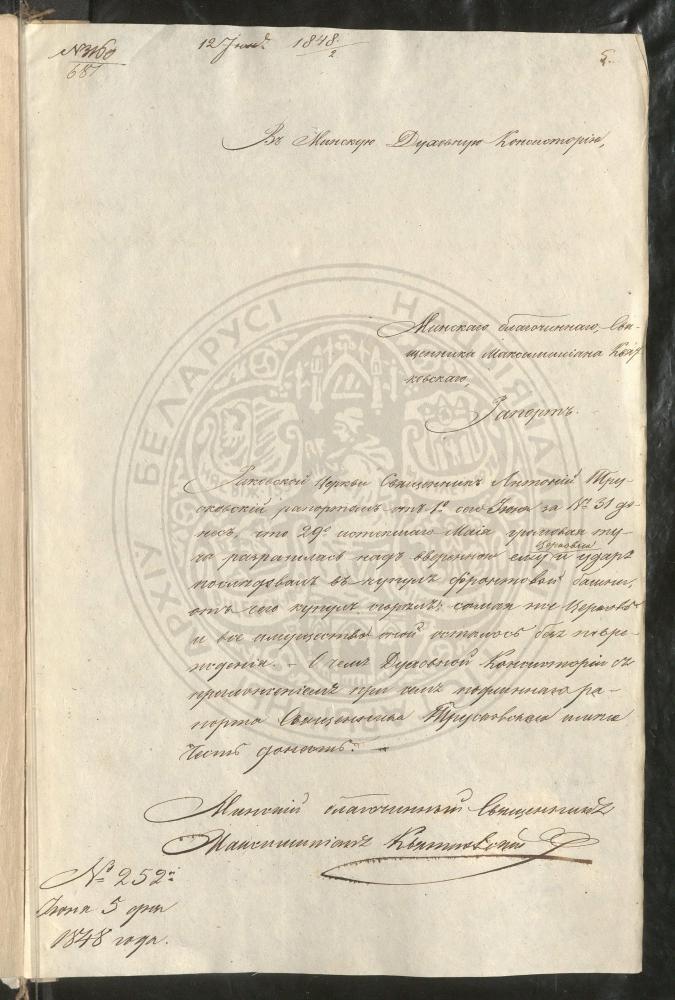 № 3160
681
12 Июня 1848
2
5.
Въ Минскую Духовную Консисторію,
Минскаго благочиннаго, Свя-
щенника Максимиліана
ковскаго,
Рапортъ.
Раковской Церкви Священникъ Антоній Тру-
сковскій рапортомъ отъ 1го сего Іюня за № 31 до-
несъ, что 29го истекшаго Маія громовая ту-
ча разразилась надъ ввѣренною ему Церковью и ударъ
послѣдовалъ въ куполъ фронтовой башни,
отъ чего куполъ сгорѣлъ, самая же Церковь
и все имущество оной осталось безъ повре-
жденія. – О чемъ Духовной Консисторіи съ
приложеніемъ при семъ подлиннаго ра-
порта Священника Трусковскаго имѣю
честь донесть. –
Минскій благочинный Священникъ
Максимиліанъ
№ 252й
Іюня 5 дня
1848 года.
АРХІЎ БЕЛАРУСІ